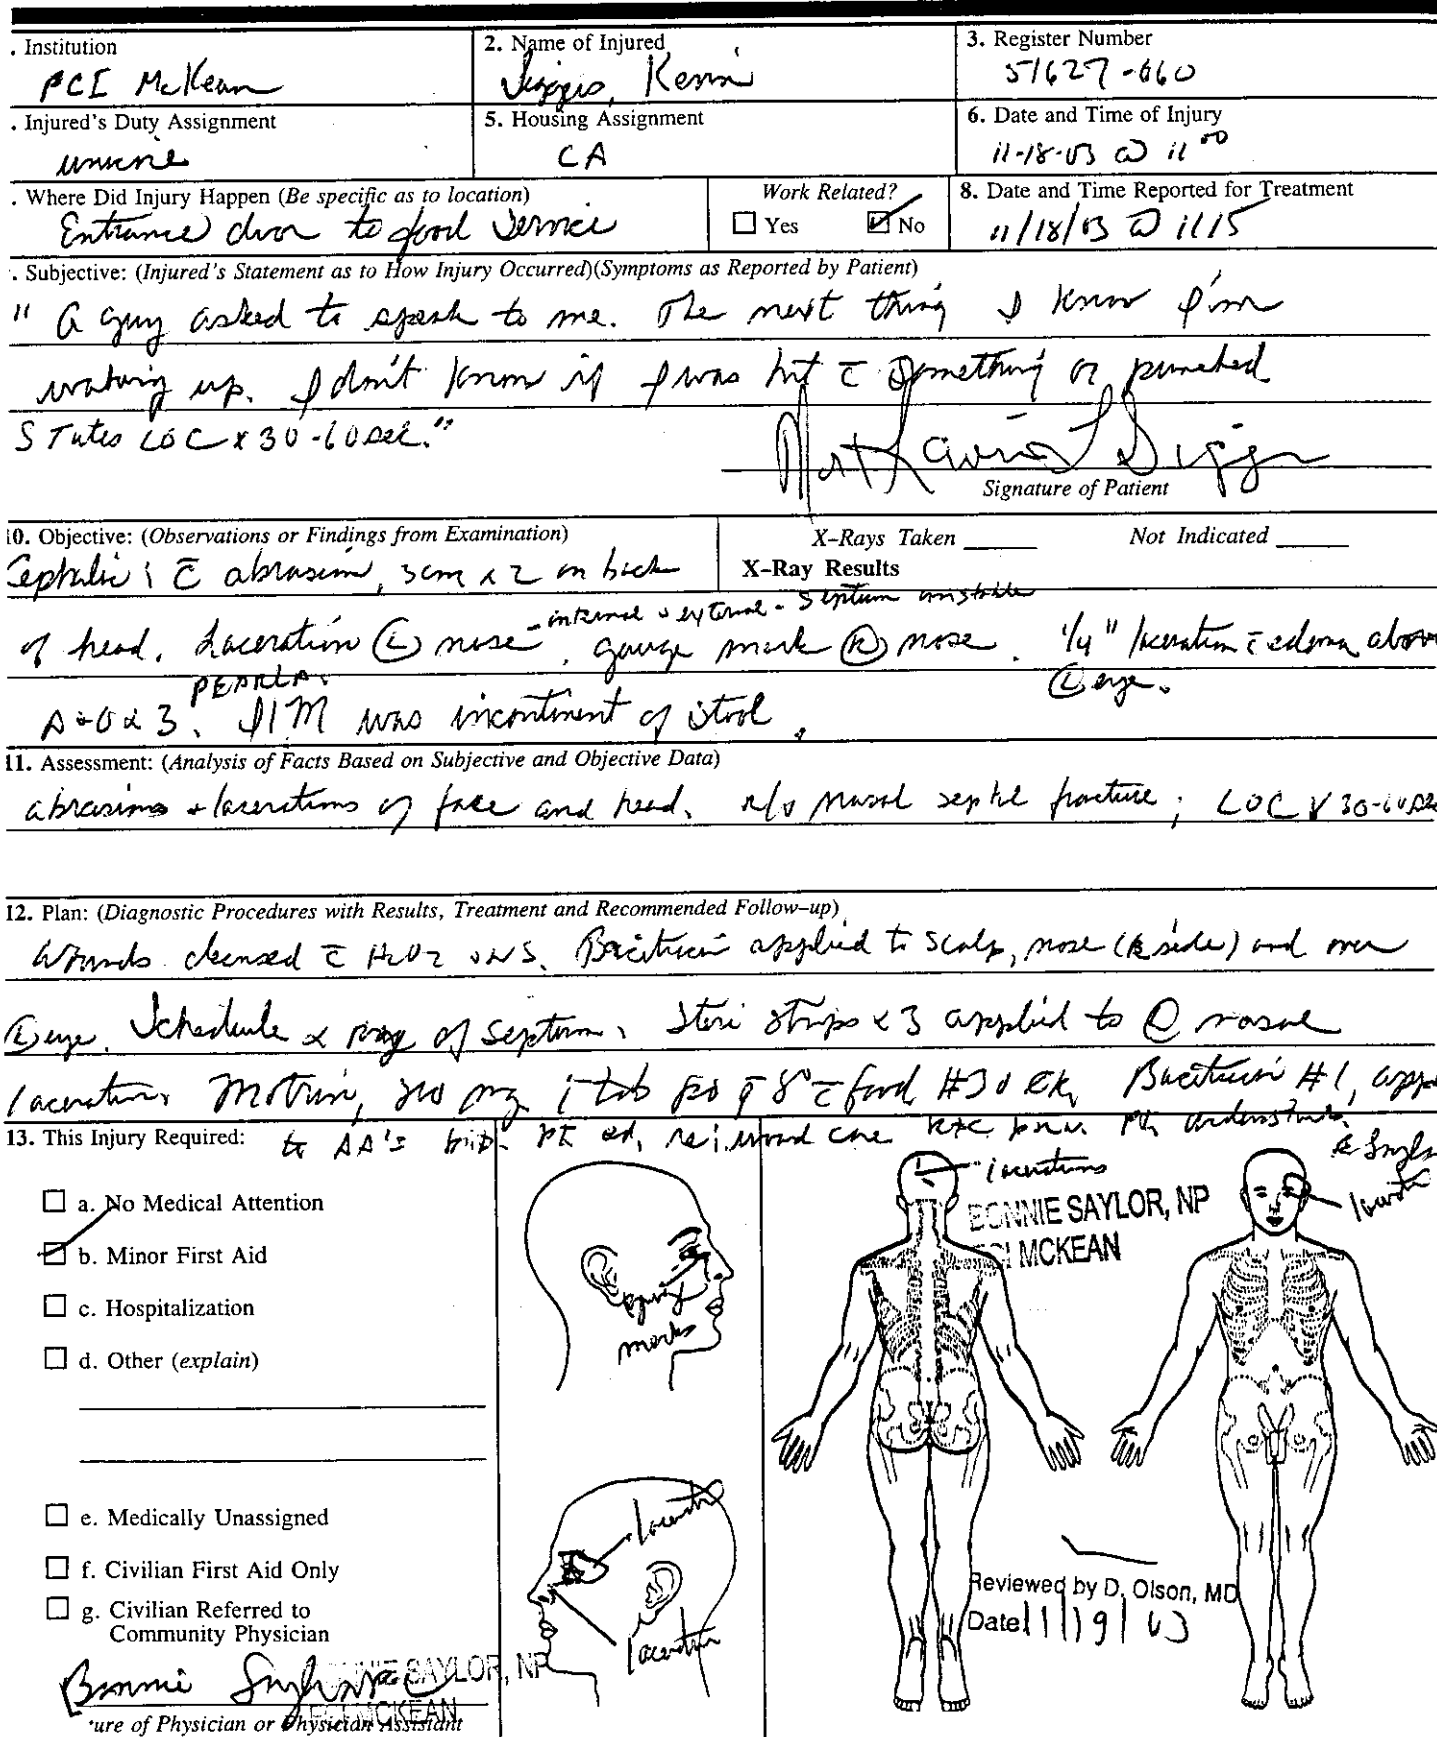 . Institution
FCI McKean
2. Name of Injured
Kevin
3. Register Number
51627-060
. Injured's Duty Assignment
5. Housing Assignment
CA
6. Date and Time of Injury
11-18-03 @ 11 00
. Where Did Injury Happen (Be specific as to location)
Entrance door to food service
Work Related?
Yes No
8. Date and Time Reported for Treatment
11/18/03 @ 1115
. Subjective: (Injured's Statement as to How Injury Occurred)(Symptoms as Reported by Patient)
" A guy asked to speak to me. The next thing I know I'm
waking up. I don't know if I was hit c̄ something or punched
States LOC x 30-60 sec."
Signature of Patient
10. Objective: (Observations or Findings from Examination)
X-Rays Taken Not Indicated
Cephalic: c̄ abrasion, 3cm x 2 on back
X-Ray Results
- internal & external - Septum unstable
of head. Laceration (L) nose, gouge mark (R) nose. 1/4" laceration c̄ edema above
(L) eye.
PEARLA.
A+O x 3. I/M was incontinent of stool.
11. Assessment: (Analysis of Facts Based on Subjective and Objective Data)
abrasions + lacerations of face and head. r/o nasal septal fracture; LOC x 30-60 sec
12. Plan: (Diagnostic Procedures with Results, Treatment and Recommended Follow-up)
Wounds cleansed c̄ H2O2 & NS. Bacitracin applied to scalp, nose (R side) and over
(L) eye. Schedule x ray of septum. Steri strips x 3 applied to (L) nasal
laceration. Motrin, mg i tab po q 8° c̄ food #30 Bacitracin #1, apply
13. This Injury Required:
to AA's pt ed, re: wound care RTC prn. Pt. understands.
a. No Medical Attention
b. Minor First Aid
c. Hospitalization
d. Other (explain)
e. Medically Unassigned
f. Civilian First Aid Only
g. Civilian Referred to
Community Physician
gouge
marks
laceration
laceration
lacerations
BONNIE SAYLOR, NP
FCI MCKEAN
Reviewed by D. Olson, MD
Date 11/19/03
Bonnie Saylor
BONNIE SAYLOR, NP
FCI MCKEAN
ure of Physician or Physician Assistant